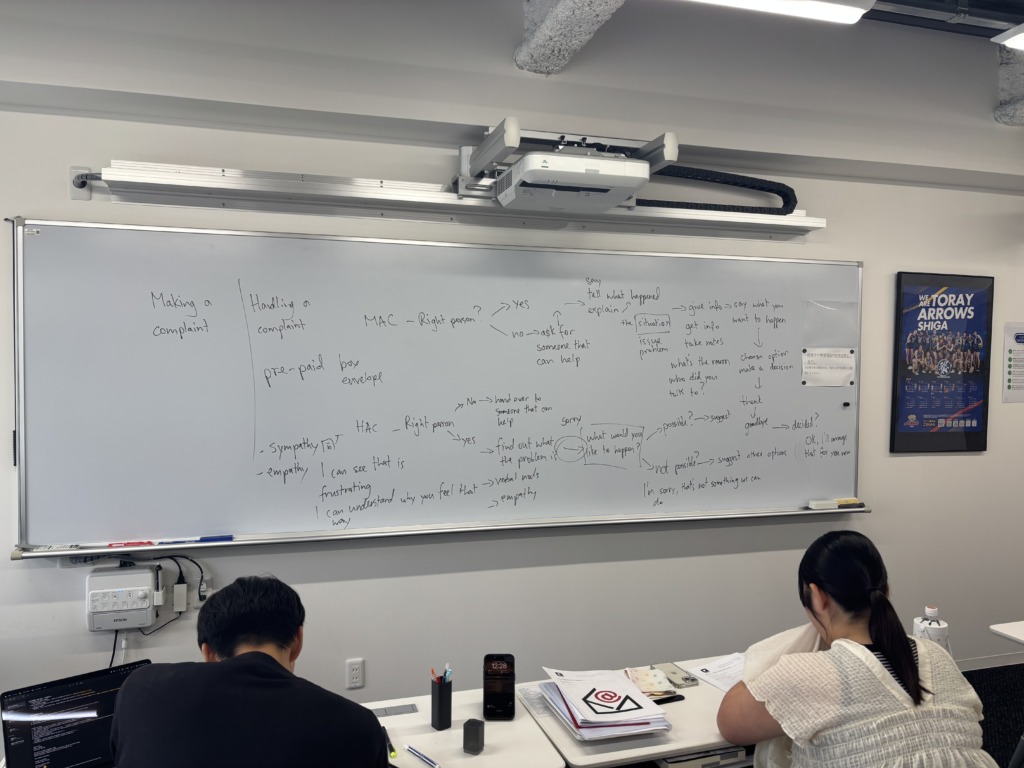 Making a
complaint
Handling a
complaint
pre-paid box
envelope
MAC - Right person?
yes
no → ask for
someone that
can help
say
tell what happened
explain
the situation
issue
problem
→ give info → say what you
want to happen
get info
take notes
what's the reason
who did you
talk to?
choose option
make a decision
thank
goodbye → decided?
OK, I'll arrange
that for you now
HAC - Right person
No → hand over to
someone that can
help
yes
→ find out what
the problem is
→ verbal nods
→ empathy
sorry
what would you
like to happen?
possible? → suggest
not possible? → suggest other options
I'm sorry, that's not something we can
do
- sympathy
- empathy
I can see that is
frustrating
I can understand why you feel that
way
WE ARE TORAY
ARROWS
SHIGA
EPSON
12:28
@